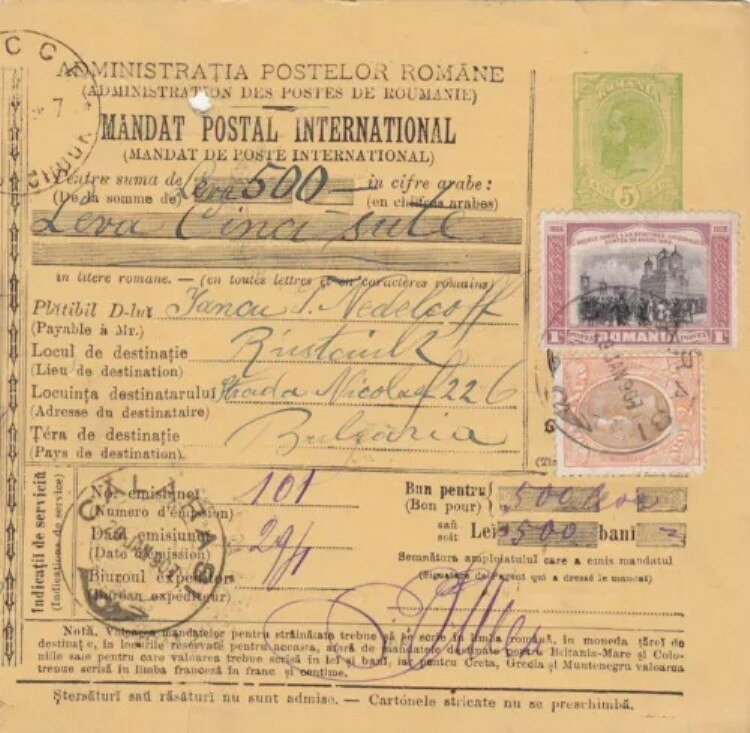 ADMINISTRAȚIA POSTELOR ROMÂNE
(ADMINISTRATION DES POSTES DE ROUMANIE)
MANDAT POSTAL INTERNATIONAL
(MANDAT DE POSTE INTERNATIONAL)
Pentru suma de Leva 500 — in cifre arabe:
(De la somme de) (en chiffres arabes)
Leva Cinci sute
in litere romane. — (en toutes lettres et en caractères romains)
Plătibil D-lui Iancu T. Nedelcoff
(Payable à Mr.)
Locul de destinație Rustciuk
(Lieu de destination)
Locuința destinatarului Strada Nicolaef 226
(Adresse du destinataire)
Țéra de destinație Bulgaria
(Pays de destination).
Indicații de serviciŭ
(Indications de service)
No. emisiuneĭ 101
(Numero d'émission)
Data emisiuneĭ 29/1
(Date d'émission)
Biuroul expeditor
(Bureau expéditeur)
Bun pentru 500 leva
(Bon pour)
saŭ
soit Leĭ 500 banĭ
Semnătura amploiatuluĭ care a emis mandatul
(Signature de l'agent qui a dressé le mandat)
Notă, Valoarea mandatelor pentru străinătate trebue să se scrie în limba română, în moneda țăreĭ de
destinație, în locurile rezervate pentru aceasta, afară de mandatele destinate pentru Britania-Mare și Colo-
niile sale pentru care valoarea trebue scrisă în leĭ și banĭ, iar pentru Creta, Grecia și Muntenegru valoarea
trebue scrisă în limba franceză în franc și centime.
Ștersăturĭ saŭ răsăturĭ nu sunt admise. — Cartónele stricate nu se preschimbă.
5
1866 1906
1 POSTA ROMANIA POSTA 1
CALARASI
29 IAN 907